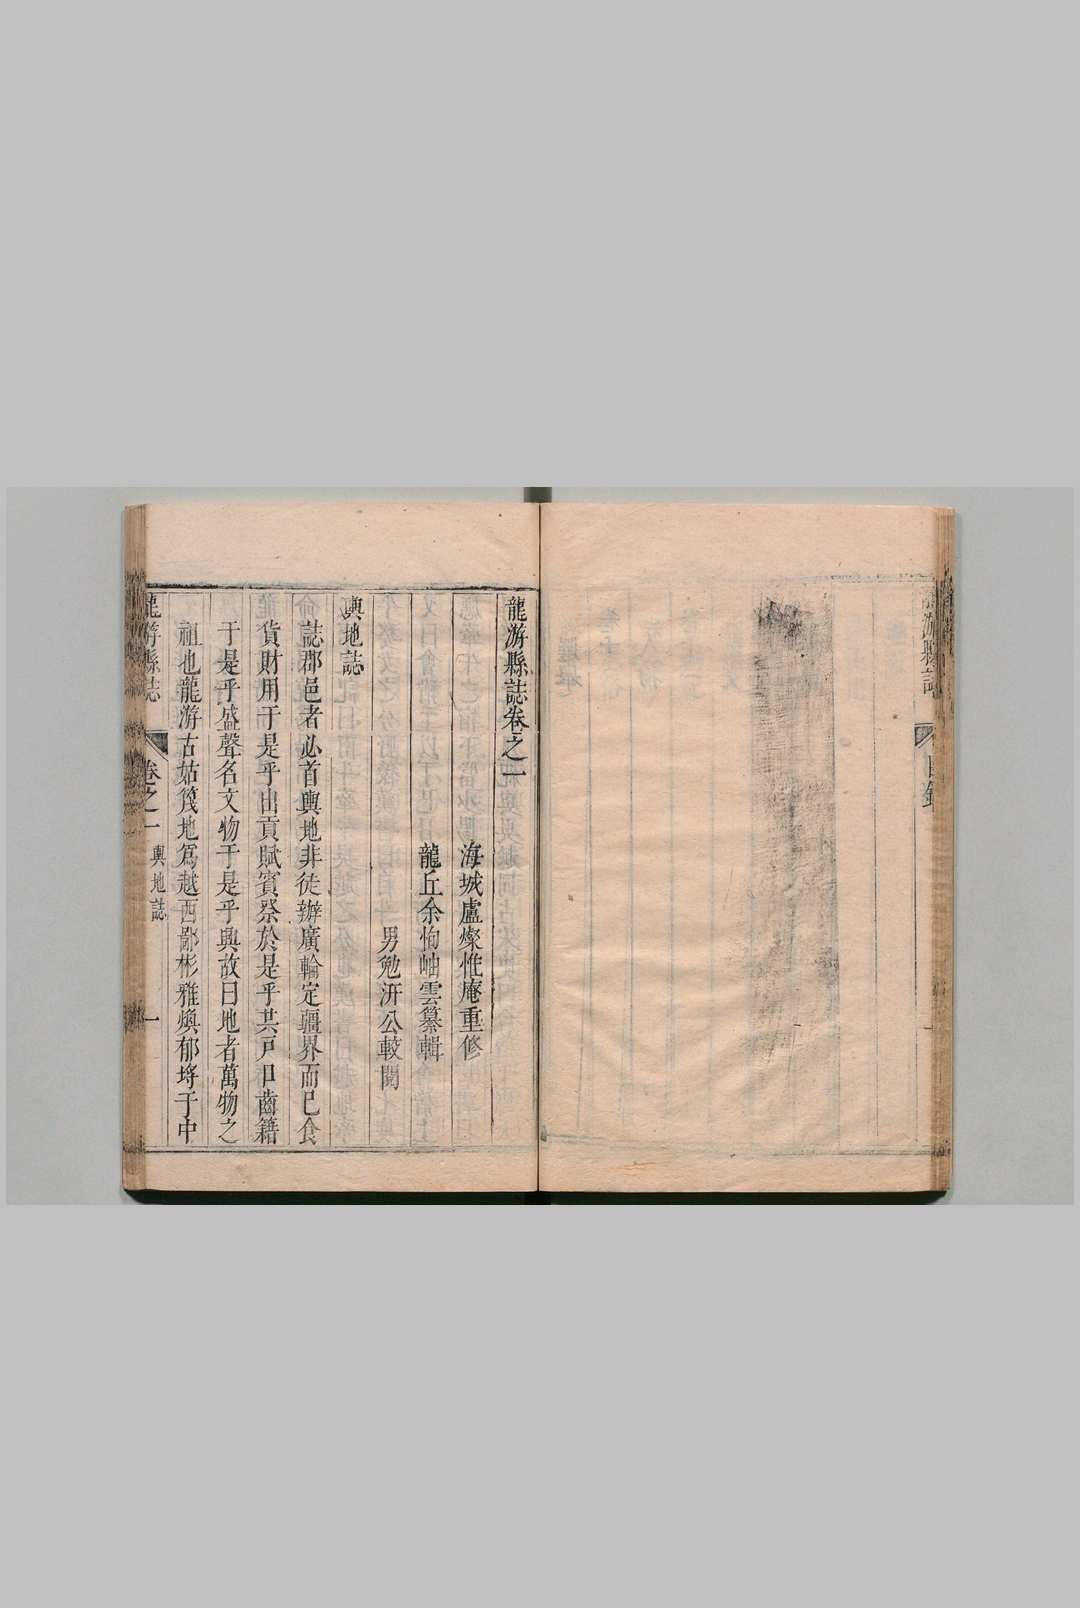 龍游縣誌
目錄
龍游縣誌卷之一
海城盧燦惟庵重修
龍丘余恂岫雲纂輯
男勉汧公較閱
輿地誌
誌郡邑者必首輿地非徒辦廣輪定疆界而已食
貨財用于是乎出貢賦賓祭於是乎共戸口齒籍
于是乎盛聲名文物于是乎興故曰地者萬物之
祖也龍游古姑篾地為越西鄙彬雅煥郁埒于中
龍游縣誌
卷之一
輿地誌
一